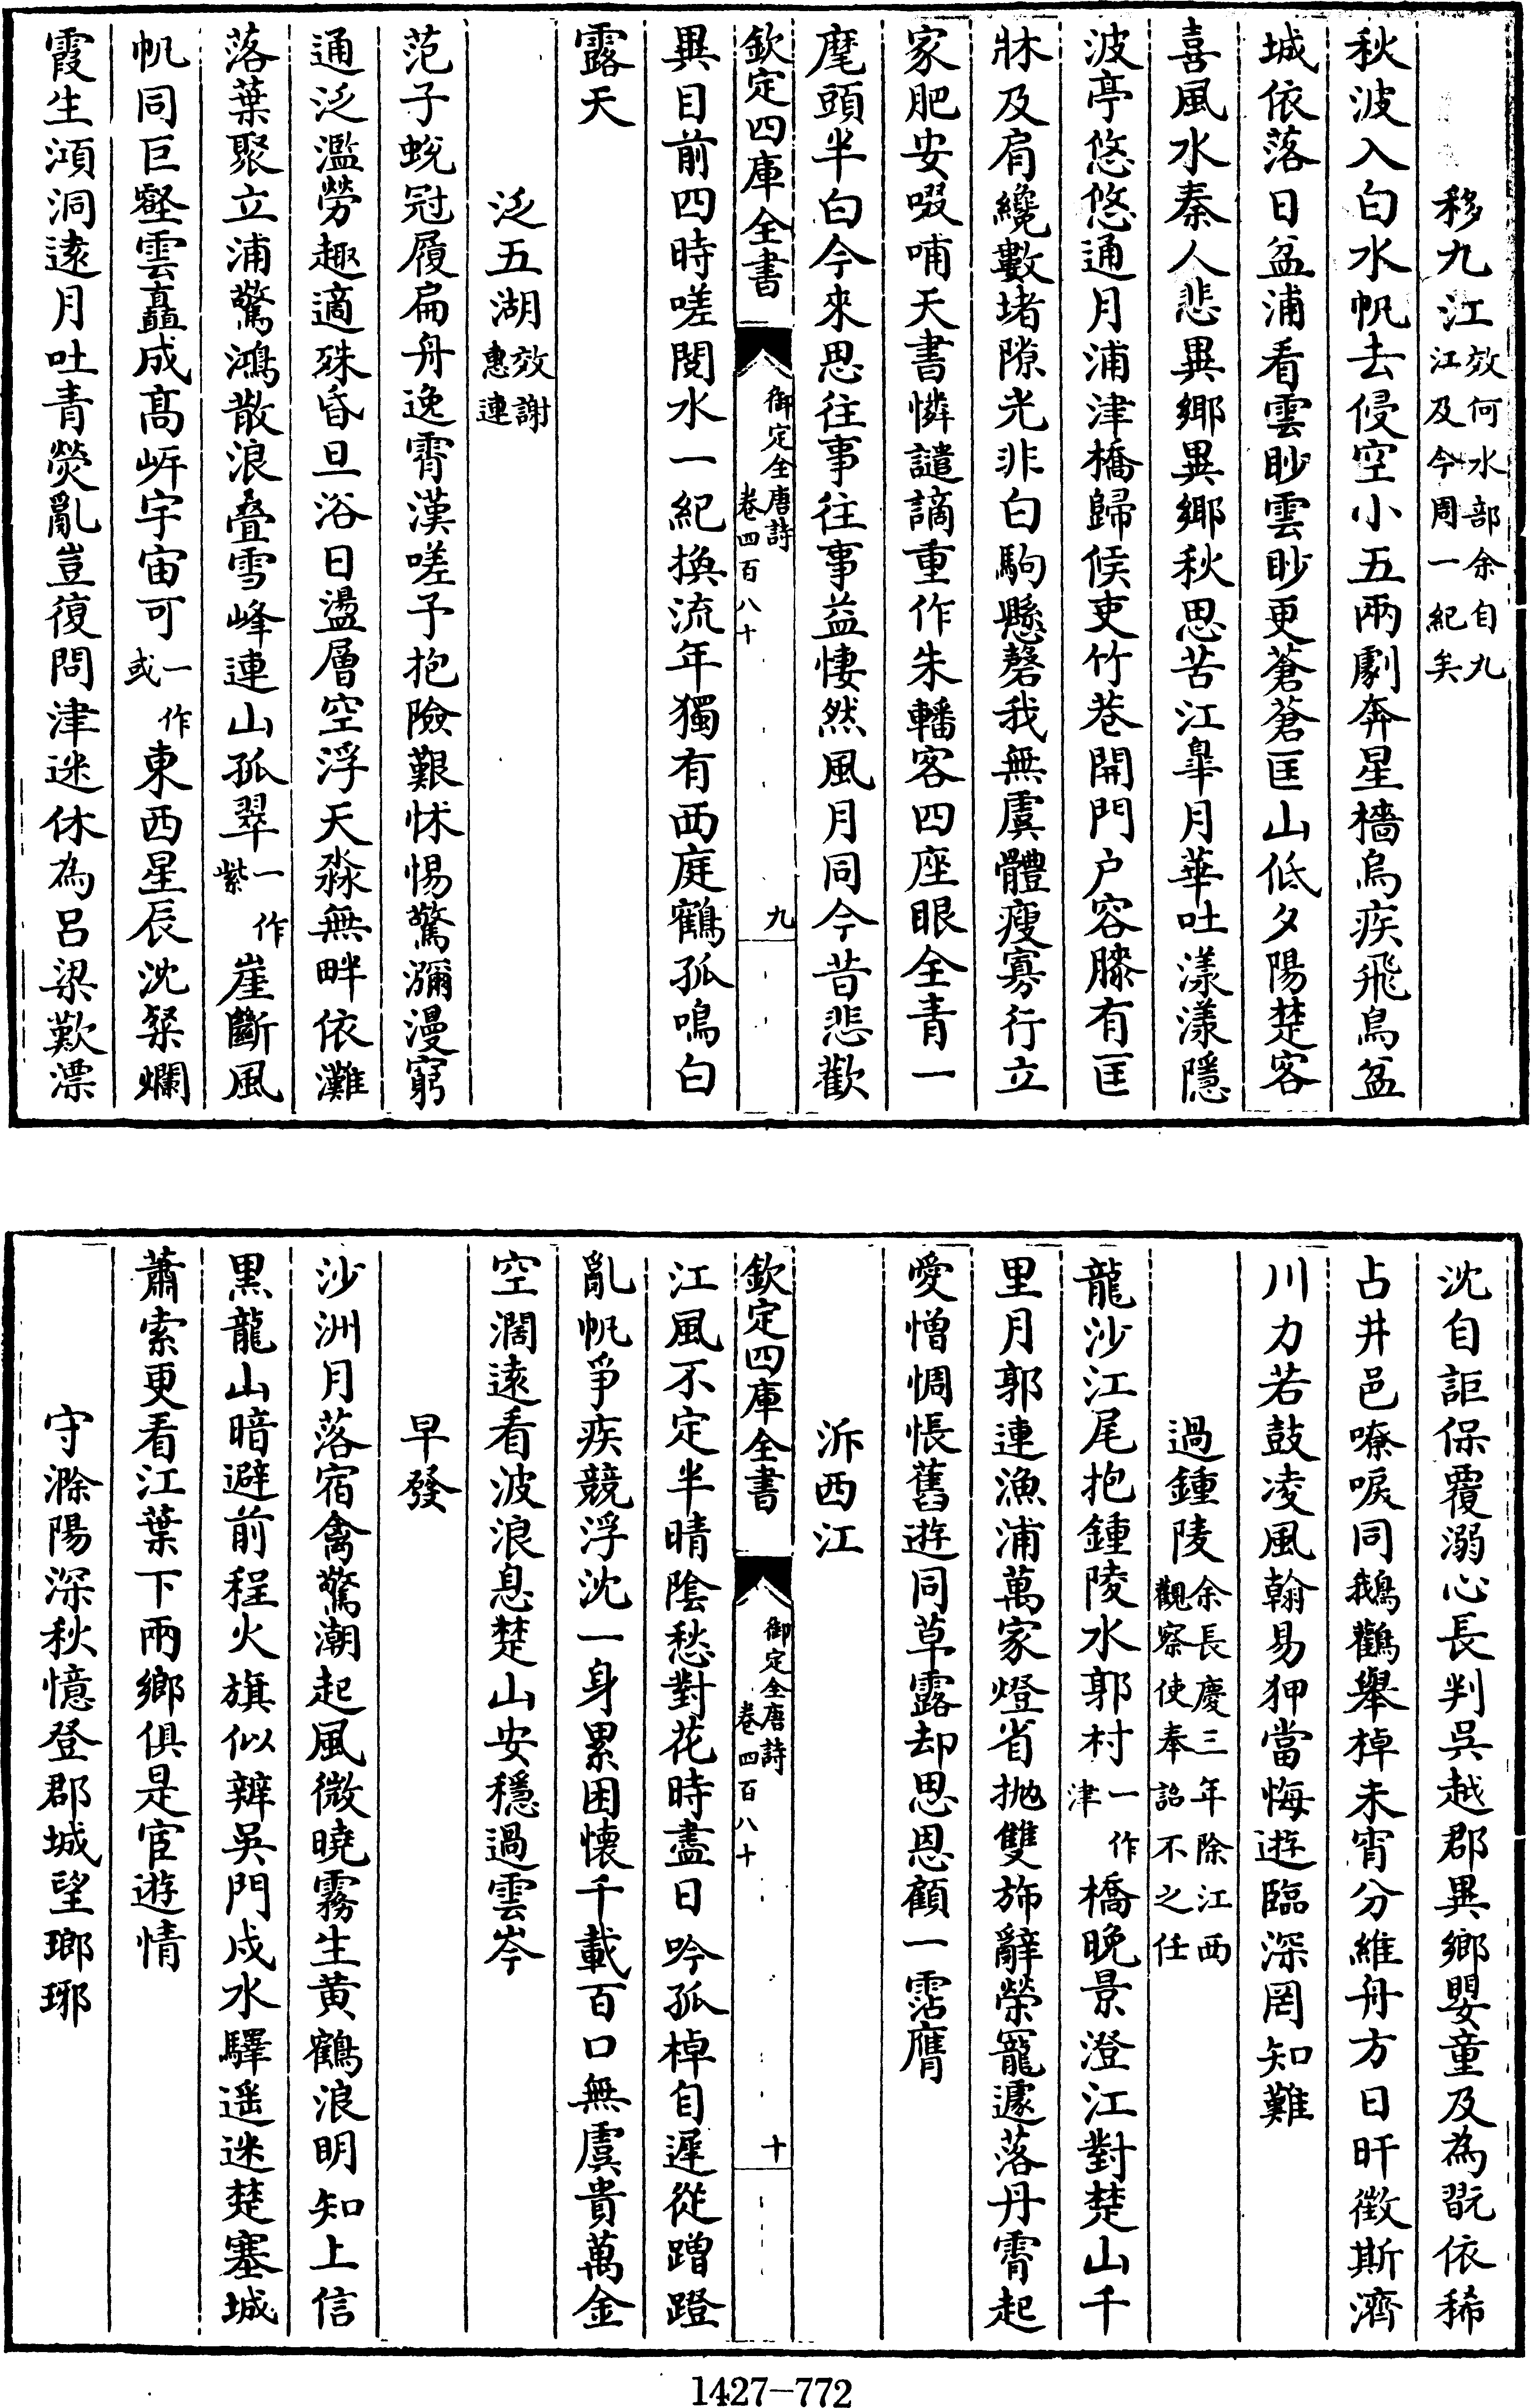 移九江效何水部余自九江及今周一紀矣
秋波入白水帆去侵空小五兩劇奔星檣烏疾飛鳥盆
城依落日盆浦看雲眇雲眇更蒼蒼匡山低夕陽楚客
喜風水秦人悲異鄉異鄉秋思苦江臯月華吐漾漾隱
波亭悠悠通月浦津橋歸候吏竹巷開門户容膝有匡
牀及肩纔數堵隙光非白駒懸磬我無虞體瘦寡行立
家肥安啜哺天書憐譴謫重作朱轓客四座眼全青一
麾頭半白今來思往事往事益悽然風月同今昔悲歡
欽定四庫全書 御定全唐詩卷四百八十 九
異目前四時嗟閱水一紀換流年獨有西庭鶴孤鳴白
露天
泛五湖效謝惠連
范子蛻冠履扁舟逸霄漢嗟予抱險艱怵惕驚瀰漫窮
通泛濫勞趣適殊昏旦浴日盪層空浮天淼無畔依灘
落葉聚立浦驚鴻散浪疊雪峰連山孤翠一作紫崖斷風
帆同巨壑雲矗成髙岍宇宙可一作或東西星辰沈粲爛
霞生澒洞逺月吐青熒亂豈復問津迷休為呂梁歎漂
沈自詎保覆溺心長判吳越郡異鄉嬰童及為翫依稀
占井邑嘹唳同鵝鸛舉棹未宵分維舟方日旰徴斯濟
川力若鼓凌風翰易狎當悔遊臨深罔知難
過鍾陵余長慶三年除江西觀察使奉詔不之任
龍沙江尾抱鍾陵水郭村一作津橋晚景澄江對楚山千
里月郭連漁浦萬家燈省抛雙斾辭榮寵遽落丹霄起
愛憎惆悵舊遊同草露却思恩顧一霑膺
泝西江
欽定四庫全書 御定全唐詩卷四百八十 十
江風不定半晴隂愁對花時盡日吟孤棹自遲從蹭蹬
亂帆爭疾競浮沈一身累困懐千載百口無虞貴萬金
空濶逺看波浪息楚山安穩過雲岑
早發
沙洲月落宿禽驚潮起風微曉霧生黄鶴浪明知上信
黒龍山暗避前程火旗似辨吳門戍水驛遥迷楚塞城
蕭索更看江葉下兩鄉俱是宦遊情
守滁陽深秋憶登郡城望瑯琊
1427-772